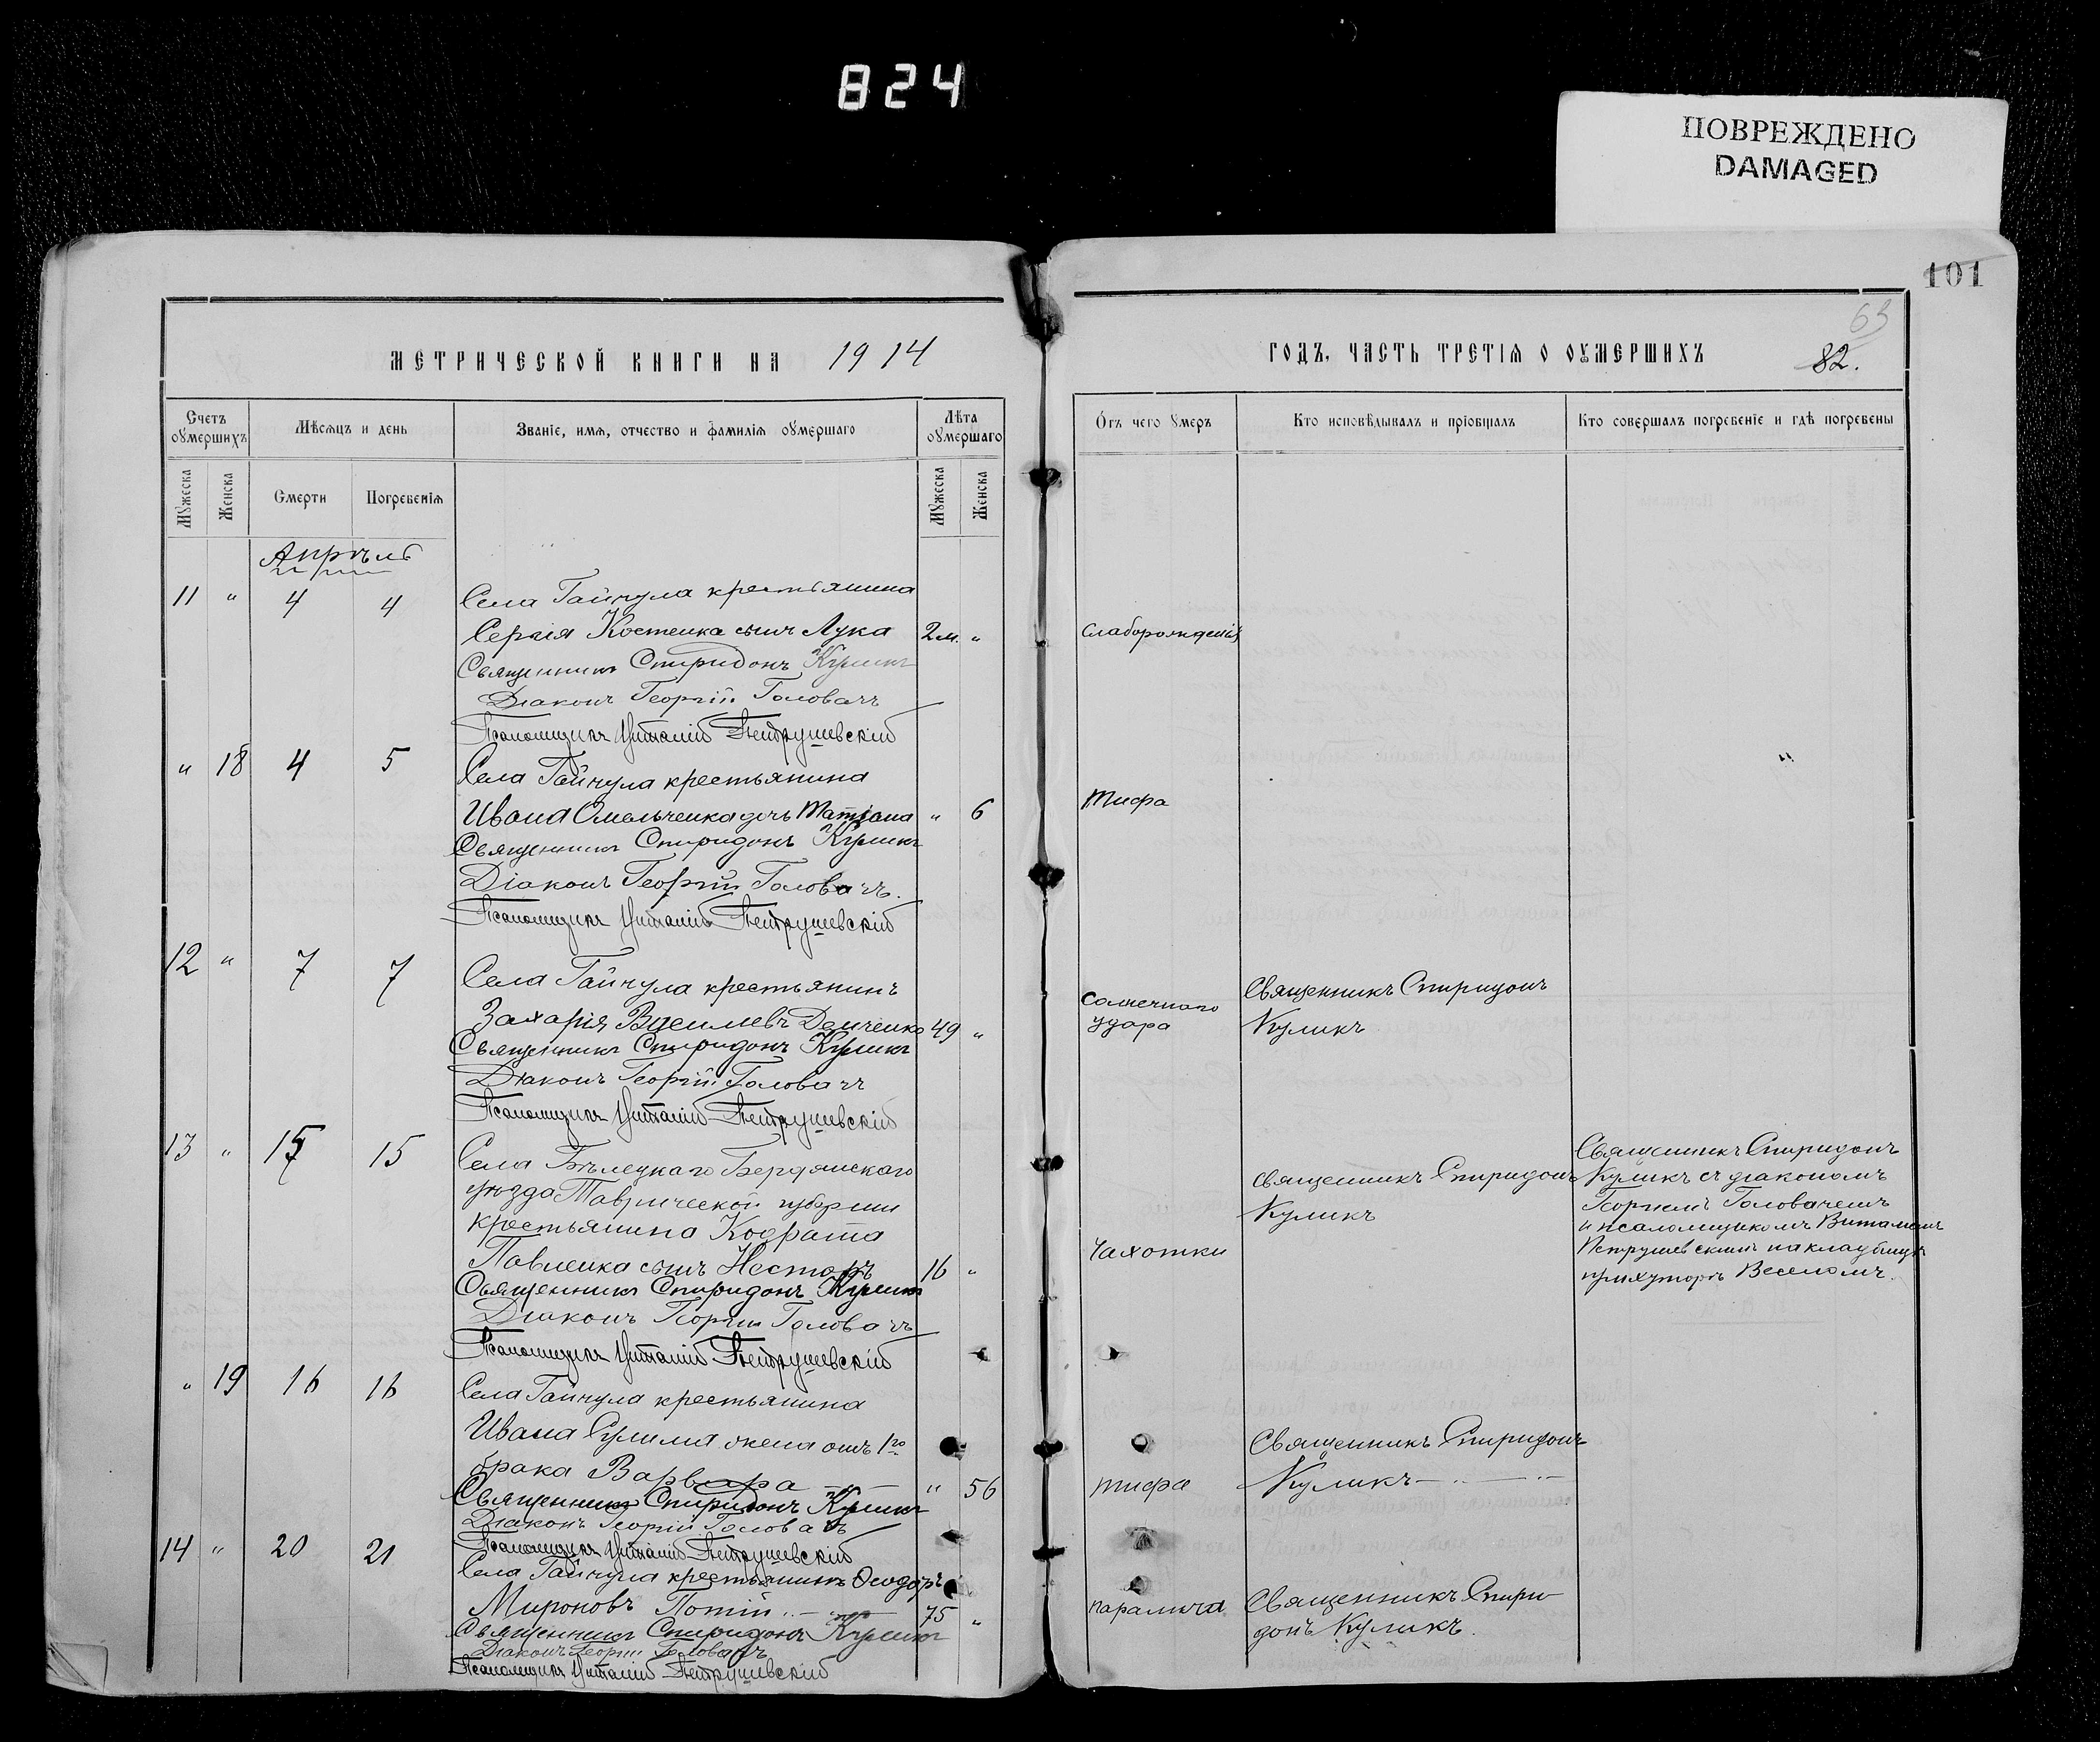 824
ПОВРЕЖДЕНО
DAMAGED
101
63
82.
МЕТРИЧЕСКОЙ КНИГИ НА 1914
ГОДЪ, ЧАСТЬ ТРЕТІѦ О ОУМЕРШИХЪ
Счетъ оумершихъ
Мѣсѧцъ и день
Званіе, имѧ, отчество и фамиліѧ оумершаго
Лѣта оумершаго
Мужеска
Женска
Смерти
Погребеніѧ
Мужеска
Женска
Отъ чего умеръ
Кто исповѣдывалъ и пріобщалъ
Кто совершалъ погребеніе и гдѣ погребены
Апрѣль
11 " 4 4 Села Гайчула крестьянина
Сергія Костенка сынъ Лука 2 м. "
Слаборожденія
Священникъ Спиридонъ Куликъ
Діаконъ Георгій Головачъ
Псаломщикъ Виталій Петрушевскій
" 18 4 5 Села Гайчула крестьянина
Ивана Омельченка дочь Татіана " 6
Тифа
"
Священникъ Спиридонъ Куликъ
Діаконъ Георгій Головачъ.
Псаломщикъ Виталій Петрушевскій
12 " 7 7 Села Гайчула крестьянинъ
Захарія Василіевъ Демченко 49 "
Солнечнаго
удара
Священникъ Спиридонъ
Куликъ
Священникъ Спиридонъ Куликъ
Діаконъ Георгій Головачъ
Псаломщикъ Виталій Петрушевскій
13 " 15 15 Села Бѣлецкаго Бердянскаго
уѣзда Таврической губерніи
крестьянина Кодрата
Павленка сынъ Несторъ 16 "
Чахотки
Священникъ Спиридонъ
Куликъ
Священникъ Спиридонъ
Куликъ съ діакономъ
Георгіемъ Головачемъ
и псаломщикомъ Виталіемъ
Петрушевскимъ на кладбищѣ
при хуторѣ Веселомъ.
Священникъ Спиридонъ Куликъ
Діаконъ Георгій Головачъ
Псаломщикъ Виталій Петрушевскій
" 19 16 16 Села Гайчула крестьянина
Ивана Сулима жена отъ 1го
брака Варвара " 56
тифа
Священникъ Спиридонъ
Куликъ
Священникъ Спиридонъ Куликъ
Діаконъ Георгій Головачъ
Псаломщикъ Виталій Петрушевскій
14 " 20 21 Села Гайчула крестьянинъ Ѳеодоръ
Мироновъ Потій 75 "
паралича
Священникъ Спири
донъ Куликъ.
Священникъ Спиридонъ Куликъ
Діаконъ Георгій Головачъ
Псаломщикъ Виталій Петрушевскій